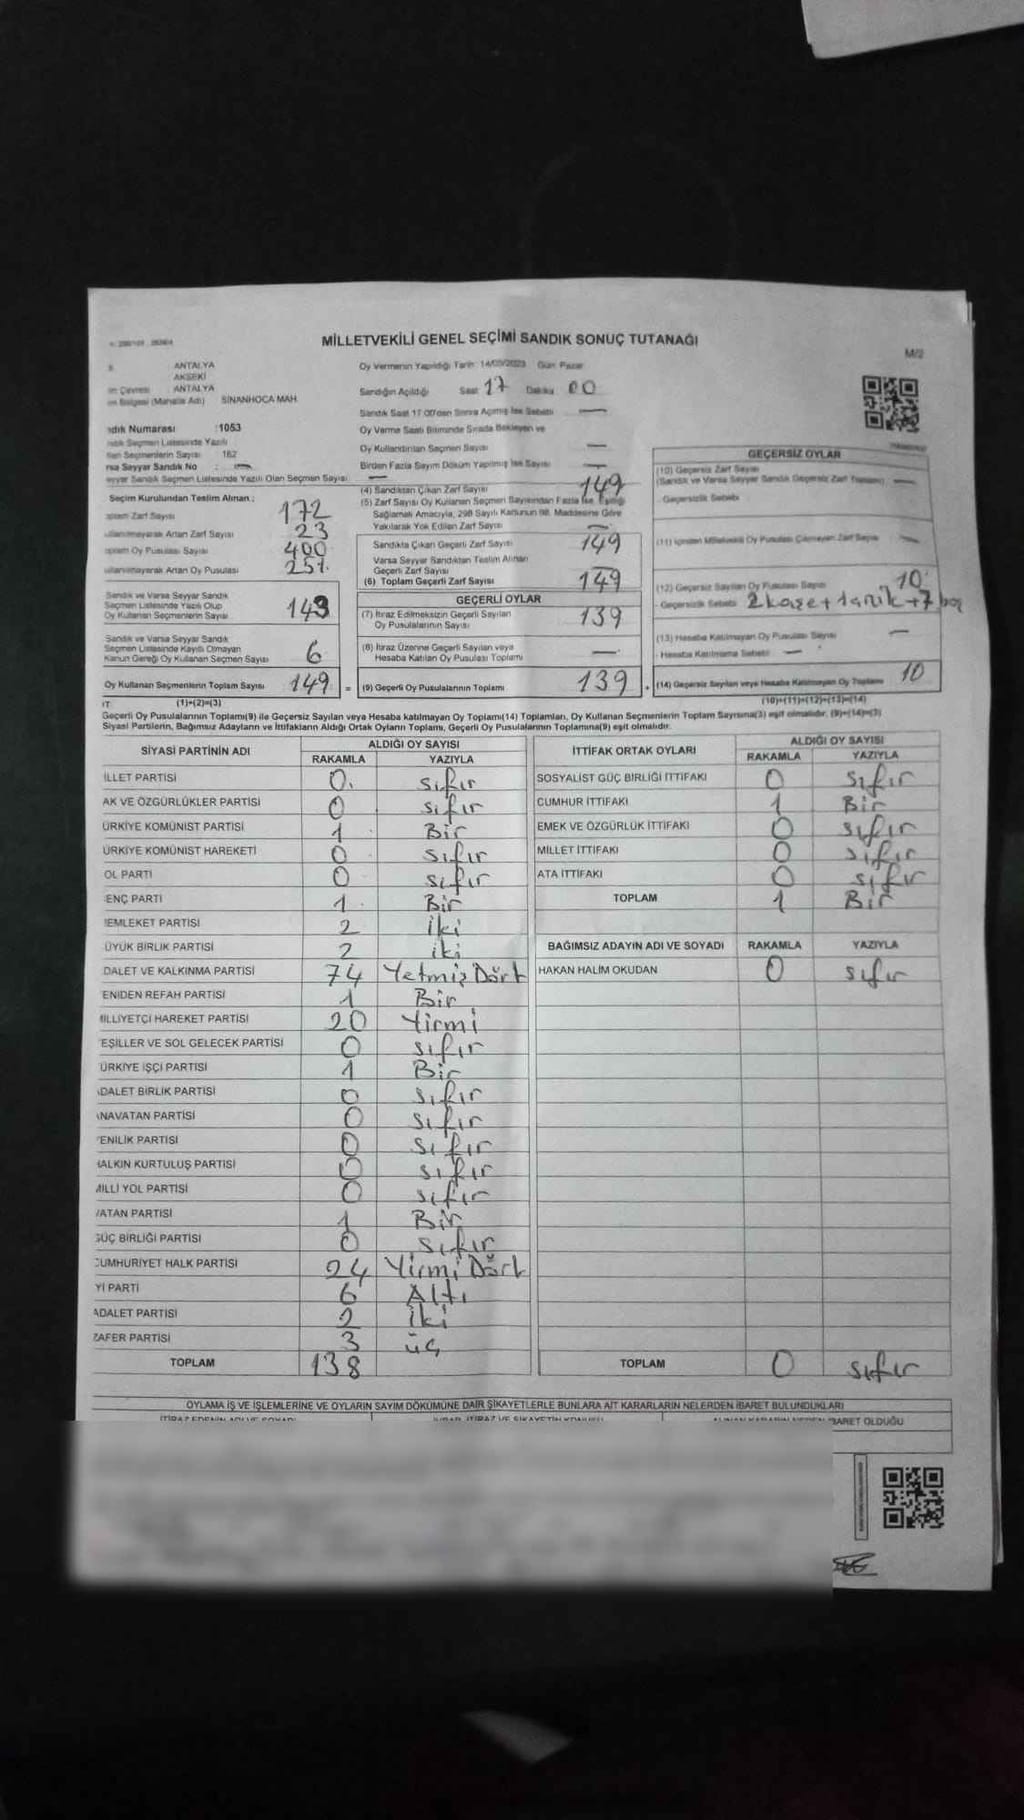 MİLLETVEKİLİ GENEL SEÇİMİ SANDIK SONUÇ TUTANAĞI
M/2
ANTALYA
AKSEKİ
ANTALYA
Bölgesi (Mahalle Adı) SİNANHOCA MAH.
ndık Numarası :1053
Seçmen Listesinde Yazılı
Seçmenlerin Sayısı 162
rsa Seyyar Sandık No : —
Seyyar Sandık Seçmen Listesinde Yazılı Olan Seçmen Sayısı —
Seçim Kurulundan Teslim Alınan ;
Zarf Sayısı 172
Artan Zarf Sayısı 23
Oy Pusulası Sayısı 400
Artan Oy Pusulası 251
Sandık ve Varsa Seyyar Sandık
Seçmen Listesinde Yazılı Olup
Oy Kullanan Seçmenlerin Sayısı 143
Sandık ve Varsa Seyyar Sandık
Seçmen Listesinde Kayıtlı Olmayan
Kanun Gereği Oy Kullanan Seçmen Sayısı 6
Oy Kullanan Seçmenlerin Toplam Sayısı 149 =
(1)+(2)=(3)
Oy Vermenin Yapıldığı Tarih: 14/05/2023 Gün: Pazar
Sandığın Açıldığı Saat 17 Dakika 00
Sandık Saat 17.00'den Sonra Açılmış İse Sebebi —
Oy Verme Saati Bitiminde Sırada Bekleyen ve
Oy Kullandırılan Seçmen Sayısı —
Birden Fazla Sayım Döküm Yapılmış İse Sayısı —
(4) Sandıktan Çıkan Zarf Sayısı 149
(5) Zarf Sayısı Oy Kullanan Seçmen Sayısından Fazla İse Eşitliği
Sağlamak Amacıyla, 298 Sayılı Kanunun 98. Maddesine Göre
Yakılarak Yok Edilen Zarf Sayısı —
Sandıkta Çıkan Geçerli Zarf Sayısı 149
Varsa Seyyar Sandıktan Teslim Alınan
Geçerli Zarf Sayısı —
(6) Toplam Geçerli Zarf Sayısı 149
GEÇERLİ OYLAR
(7) İtiraz Edilmeksizin Geçerli Sayılan
Oy Pusulalarının Sayısı 139
(8) İtiraz Üzerine Geçerli Sayılan veya
Hesaba Katılan Oy Pusulası Toplamı —
(9) Geçerli Oy Pusulalarının Toplamı 139 +
GEÇERSİZ OYLAR
(10) Geçersiz Zarf Sayısı
(Sandık ve Varsa Seyyar Sandık Geçersiz Zarf Toplamı) —
Geçersizlik Sebebi
(11) İçinden Milletvekili Oy Pusulası Çıkmayan Zarf Sayısı —
(12) Geçersiz Sayılan Oy Pusulası Sayısı 10
Geçersizlik Sebebi 2 kaşe+1 yırtık+7 boş
(13) Hesaba Katılmayan Oy Pusulası Sayısı —
Hesaba Katılmama Sebebi —
(14) Geçersiz Sayılan veya Hesaba Katılmayan Oy Toplamı 10
(10)+(11)+(12)+(13)=(14)
Geçerli Oy Pusulalarının Toplamı(9) ile Geçersiz Sayılan veya Hesaba katılmayan Oy Toplamı(14) Toplamları, Oy Kullanan Seçmenlerin Toplam Sayısına(3) eşit olmalıdır. (9)+(14)=(3)
Siyasi Partilerin, Bağımsız Adayların ve İttifakların Aldığı Ortak Oyların Toplamı, Geçerli Oy Pusulalarının Toplamına(9) eşit olmalıdır.
SİYASİ PARTİNİN ADI ALDIĞI OY SAYISI
RAKAMLA YAZIYLA
İLLET PARTİSİ 0 sıfır
AK VE ÖZGÜRLÜKLER PARTİSİ 0 sıfır
ÜRKİYE KOMÜNİST PARTİSİ 1 Bir
ÜRKİYE KOMÜNİST HAREKETİ 0 sıfır
OL PARTİ 0 sıfır
ENÇ PARTİ 1 Bir
EMLEKET PARTİSİ 2 iki
ÜYÜK BİRLİK PARTİSİ 2 iki
DALET VE KALKINMA PARTİSİ 74 Yetmiş Dört
ENİDEN REFAH PARTİSİ 1 Bir
İLLİYETÇİ HAREKET PARTİSİ 20 Yirmi
EŞİLLER VE SOL GELECEK PARTİSİ 0 sıfır
ÜRKİYE İŞÇİ PARTİSİ 1 Bir
ADALET BİRLİK PARTİSİ 0 sıfır
NAVATAN PARTİSİ 0 sıfır
ENİLİK PARTİSİ 0 sıfır
HALKIN KURTULUŞ PARTİSİ 0 sıfır
MİLLİ YOL PARTİSİ 0 sıfır
VATAN PARTİSİ 1 Bir
GÜÇ BİRLİĞİ PARTİSİ 0 sıfır
CUMHURİYET HALK PARTİSİ 24 Yirmi Dört
Yİ PARTİ 6 Altı
ADALET PARTİSİ 2 iki
ZAFER PARTİSİ 3 üç
TOPLAM 138
İTTİFAK ORTAK OYLARI ALDIĞI OY SAYISI
RAKAMLA YAZIYLA
SOSYALİST GÜÇ BİRLİĞİ İTTİFAKI 0 sıfır
CUMHUR İTTİFAKI 1 Bir
EMEK VE ÖZGÜRLÜK İTTİFAKI 0 sıfır
MİLLET İTTİFAKI 0 sıfır
ATA İTTİFAKI 0 sıfır
TOPLAM 1 Bir
BAĞIMSIZ ADAYIN ADI VE SOYADI RAKAMLA YAZIYLA
HAKAN HALİM OKUDAN 0 sıfır
TOPLAM 0 sıfır
OYLAMA İŞ VE İŞLEMLERİNE VE OYLARIN SAYIM DÖKÜMÜNE DAİR ŞİKAYETLERLE BUNLARA AİT KARARLARIN NELERDEN İBARET BULUNDUKLARI
BARET OLDUĞU